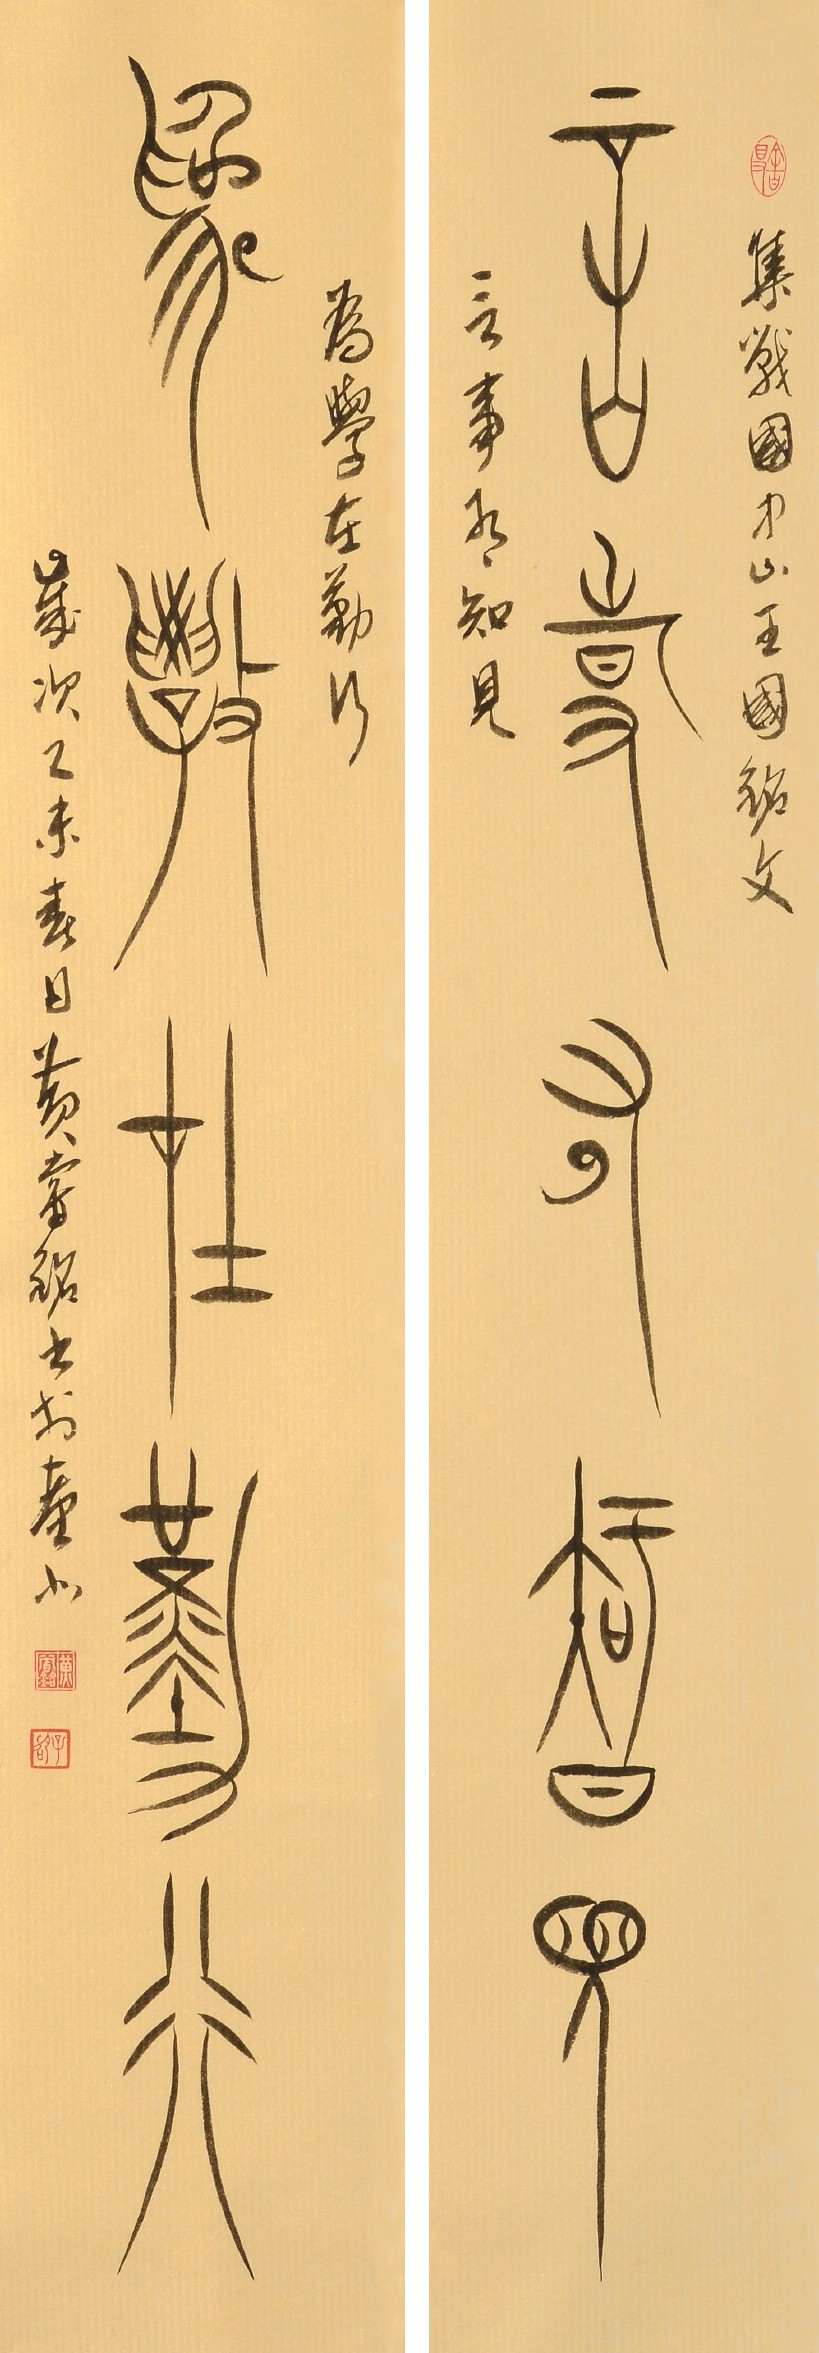 集戰國中山王國銘文
言事有智見
言事有知見
為學在勤行
為學在勤行
歲次乙未春日黃嘗銘書於臺北